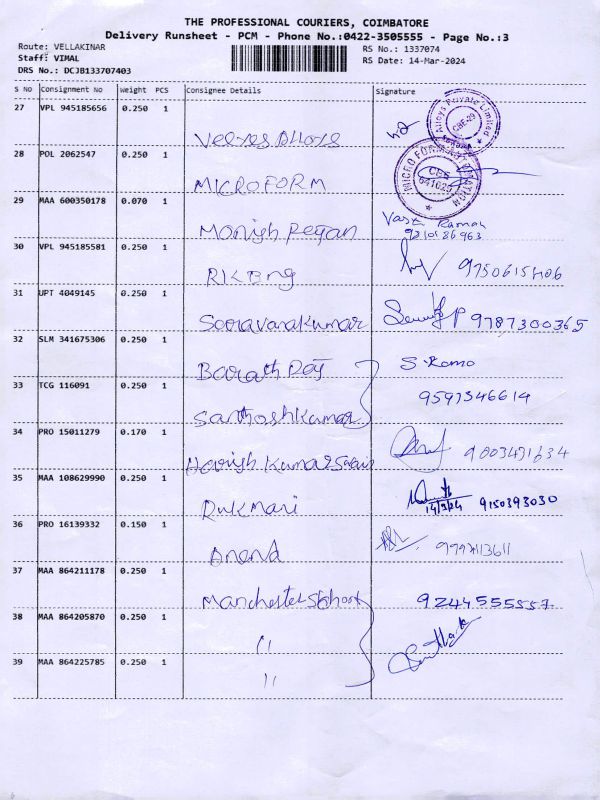 THE PROFESSIONAL COURIERS, COIMBATORE
Delivery Runsheet - PCM - Phone No.:0422-3505555 - Page No.:3
Route: VELLAKINAR
RS No.: 1337074
Staff: VIMAL
RS Date: 14-Mar-2024
DRS No.: DCJB133707403
S No Consignment No Weight PCS Consignee Details Signature
27 VPL 945185656 0.250 1
Alloys Private Limited CBE-29
28 POL 2062547 0.250 1 MICROFORM
MICRO FORM AUTOMATION CBE 641029
29 MAA 600350178 0.070 1 Monish Regan
Raman
30 VPL 945185581 0.250 1
31 UPT 4049145 0.250 1 Sooravanakumar 9787300365
32 SLM 341675306 0.250 1 Barath Raj
33 TCG 116091 0.250 1 Santhoshkumar 9597346614
34 PRO 15011279 0.170 1 Harish Kumar 9003431634
35 MAA 108629990 0.250 1 Rukmani
14/3/24 9150393030
36 PRO 16139332 0.150 1 Anand
37 MAA 864211178 0.250 1 9244555557
38 MAA 864205870 0.250 1 "
39 MAA 864225785 0.250 1 "